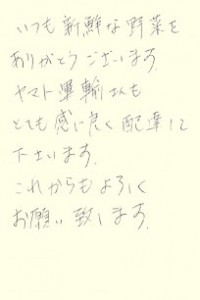 いつも新鮮な野菜を
ありがとうございます.
ヤマト運輸さんも
とても感じ良く配達して
下さいます.
これからもよろしく
お願い致します.